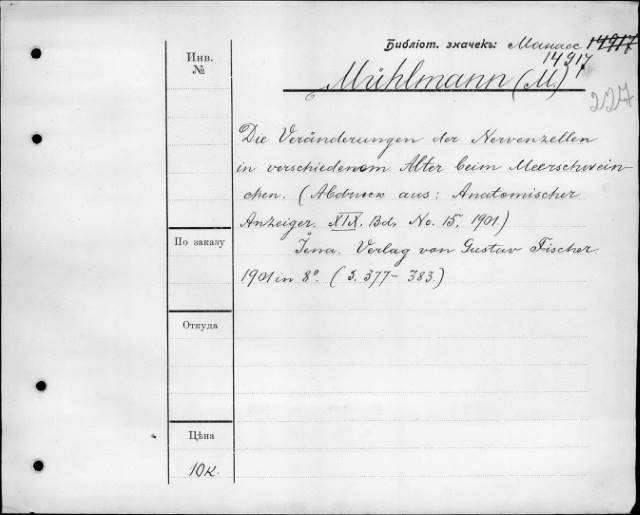 Библіот. значекъ: Манасе 14917
14917
Инв.
№
Mühlmann (M.)
227
Die Veränderungen der Nervenzellen
in verschiedenem Alter beim Meerschwein-
chen. (Abdruck aus: Anatomischer
Anzeiger. XIX. Bd. No. 15, 1901.)
По заказу
Jena. Verlag von Gustav Fischer.
1901 in 8°. (S. 377-383.)
Откуда
Цѣна
10к.